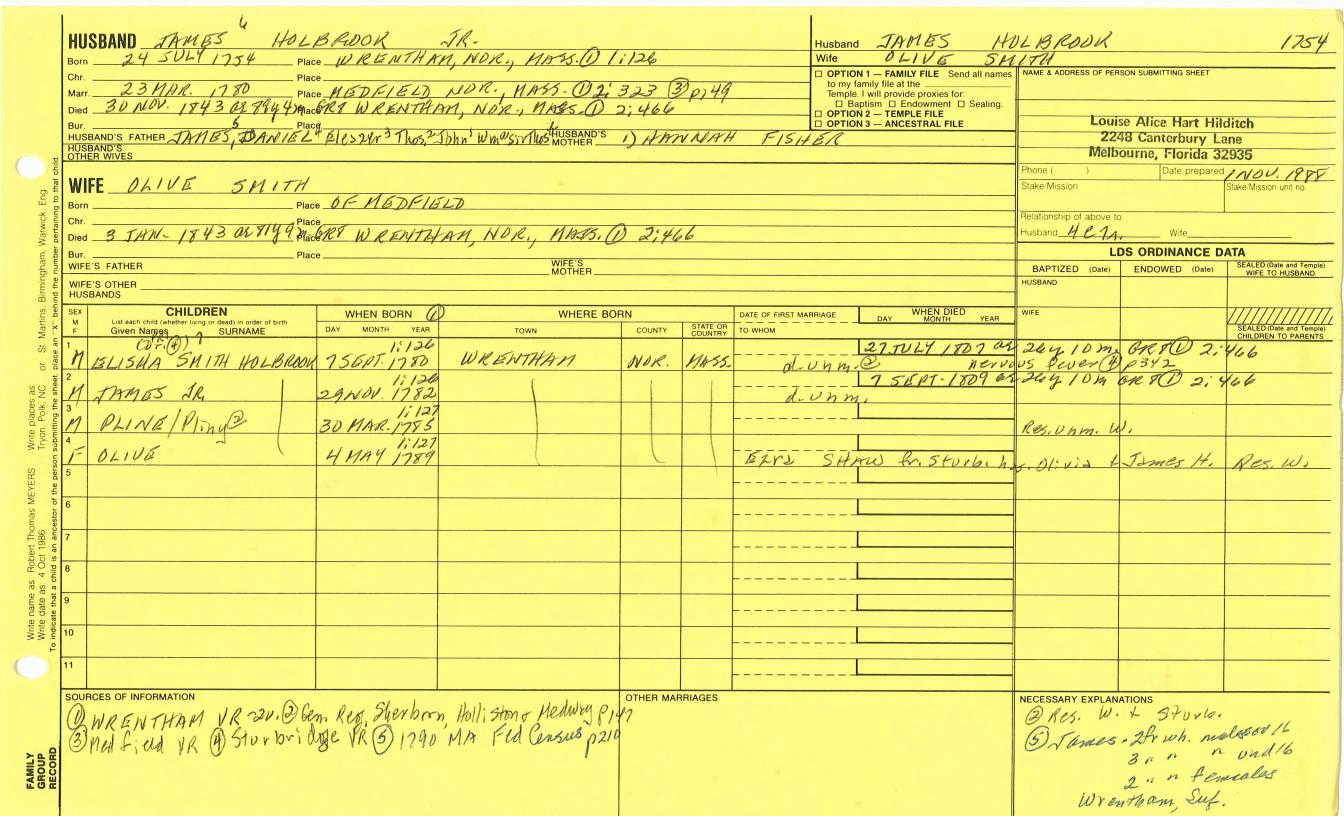 6
HUSBAND JAMES HOLBROOK JR.
Born 24 JULY 1754 Place WRENTHAM, NOR., MASS. ① 1:126
Chr. Place
Marr. 23 MAR. 1780 Place MEDFIELD NOR., MASS. ① 2; 323 ③ p149
Died 30 NOV. 1843 Place WRENTHAM, NOR., MASS. ① 2; 466
Bur. Place
HUSBAND'S FATHER JAMES, DANIEL HUSBAND'S MOTHER 1) HANNAH FISHER
HUSBAND'S OTHER WIVES
WIFE OLIVE SMITH
Born Place OF MEDFIELD
Chr. Place
Died 3 JAN. 1843 Place WRENTHAM, NOR., MASS. ① 2; 466
Bur. Place
WIFE'S FATHER WIFE'S MOTHER
WIFE'S OTHER HUSBANDS
Husband JAMES HOLBROOK 1754
Wife OLIVE SMITH
☐ OPTION 1 — FAMILY FILE Send all names
to my family file at the
Temple. I will provide proxies for:
☐ Baptism ☐ Endowment ☐ Sealing.
☐ OPTION 2 — TEMPLE FILE
☐ OPTION 3 — ANCESTRAL FILE
NAME & ADDRESS OF PERSON SUBMITTING SHEET
Louise Alice Hart Hilditch
2248 Canterbury Lane
Melbourne, Florida 32935
Phone ( ) Date prepared 1 NOV. 1988
Stake/Mission Stake/Mission unit no.
Relationship of above to
Husband Wife
LDS ORDINANCE DATA
BAPTIZED (Date) ENDOWED (Date) SEALED (Date and Temple) WIFE TO HUSBAND
HUSBAND
WIFE
SEALED (Date and Temple) CHILDREN TO PARENTS
SEX M F CHILDREN WHEN BORN ① WHERE BORN DATE OF FIRST MARRIAGE WHEN DIED
List each child (whether living or dead) in order of birth
Given Names SURNAME DAY MONTH YEAR TOWN COUNTY STATE OR COUNTRY TO WHOM DAY MONTH YEAR
1 1:126 27 JULY 1807 26y 10m GR8 ① 2; 466
M ELISHA SMITH HOLBROOK 7 SEPT. 1780 WRENTHAM NOR. MASS. d. unm. ② nervous fever ④ p342
2 1:126 7 SEPT. 1809 26y 10m GR8 ① 2; 466
M JAMES JR 29 NOV. 1782 d. unm.
3 1:127
M PLINE/Pliny ② 30 MAR. 1785 Res. unm. W.
4 1:127
F OLIVE 4 MAY 1789 Ezra SHAW fr. Sturb. Olivia & James H. Res. W.
5
6
7
8
9
10
11
SOURCES OF INFORMATION
① WRENTHAM VR 2v. ② Gen. Reg. Sherborn, Holliston & Medway p147
③ Medfield VR ④ Sturbridge VR ⑤ 1790 MA Fed Census p210
OTHER MARRIAGES
NECESSARY EXPLANATIONS
② Res. W. & Sturb.
⑤ James - 2 fr wh. males ov 16
3 " " " und 16
2 " " females
Wrentham, Suf.
Write name as Robert Thomas MEYERS Write places as Tryon, Polk, NC or St. Martins, Birmingham, Warwick, Eng
Write date as 4 Oct 1986
To indicate that a child is an ancestor of the person submitting the sheet, place an "X" behind the number pertaining to that child
FAMILY GROUP RECORD